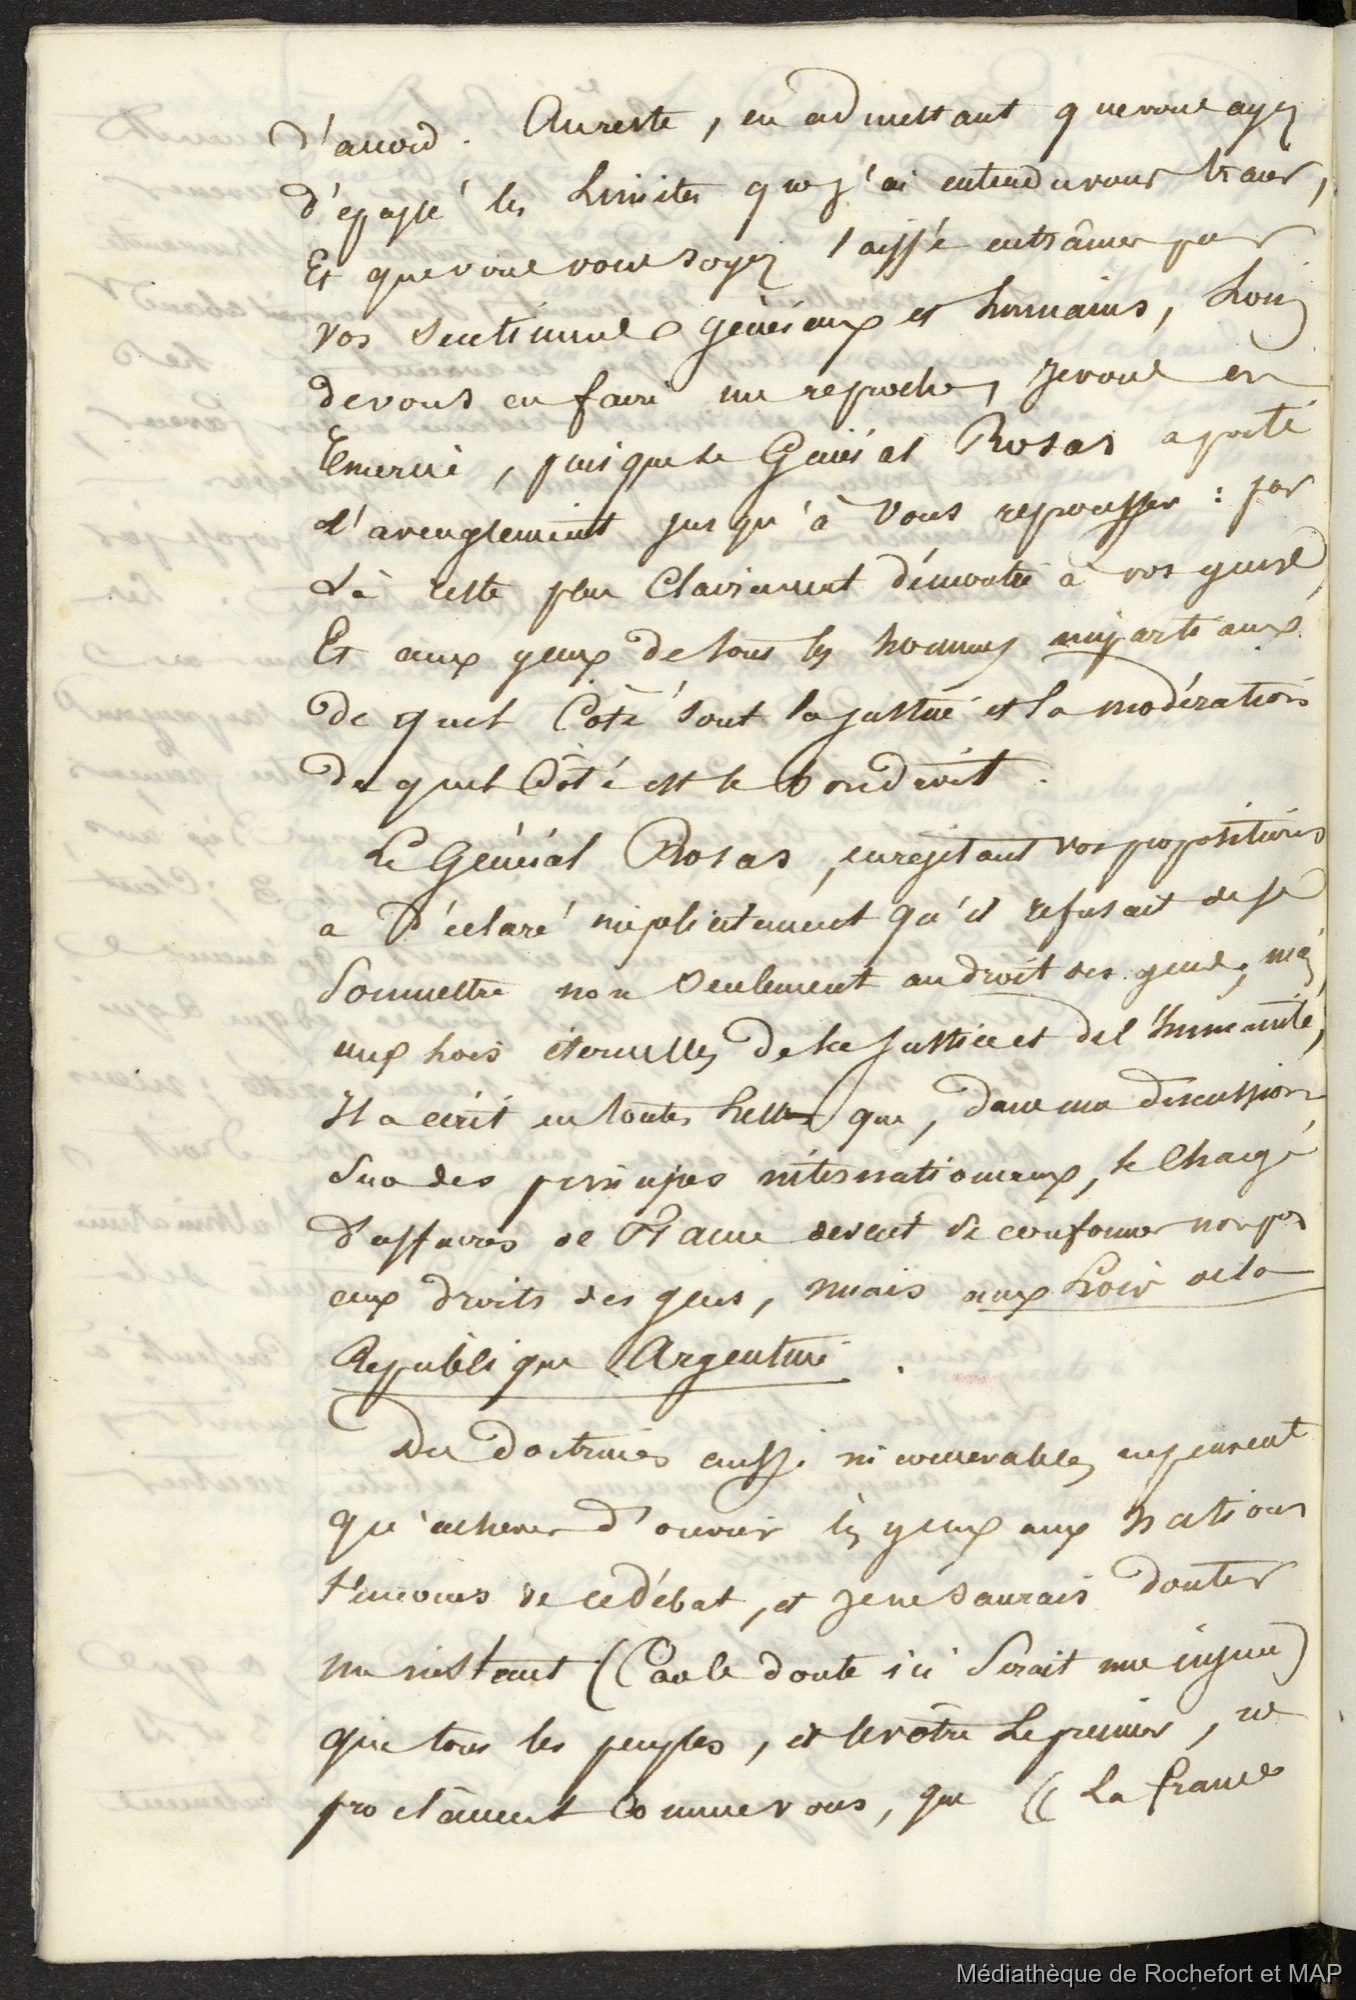 d'accord. Au reste, en admettant que vous ayez
d'épassé les Limites que j'ai entendu vous tracer,
Et que vous vous soyez laissé entrâiner par
vos sentiments généreux et humains, Loin
de vous en faire un reproche, je vous en
remercie, puisque le Général Rosas a porté
l'aveuglement jusqu'à vous repousser : par
là reste plus Clairement démontré à vos yeux
Et aux yeux de tous les hommes impartiaux
de quel Côté sont la justice et la modération
de quel Côté est le bon droit.
Le Général Rosas, en rejetant vos propositions
a Déclaré implicitement qu'il refusait de se
Soumettre non seulement au droit des gens, mais
aux Lois éternelles de la Justice et de l'humanité,
Il a écrit en toutes Lettres que, dans une discussion
sur des principes internationaux, le Chargé
d'affaires de France devait se conformer non pas
aux droits des gens, mais aux Lois de la
République Argentine.
Des doctrines aussi incroyables ne peuvent
qu'achever d'ouvrir les yeux aux Nations
témoins de ce débat, et je ne saurais douter
un instant (Car le doute ici Serait une injure)
que tous les peuples, et le vôtre Le premier, ne
proclâment Comme vous, que (( La france
Médiathèque de Rochefort et MAP